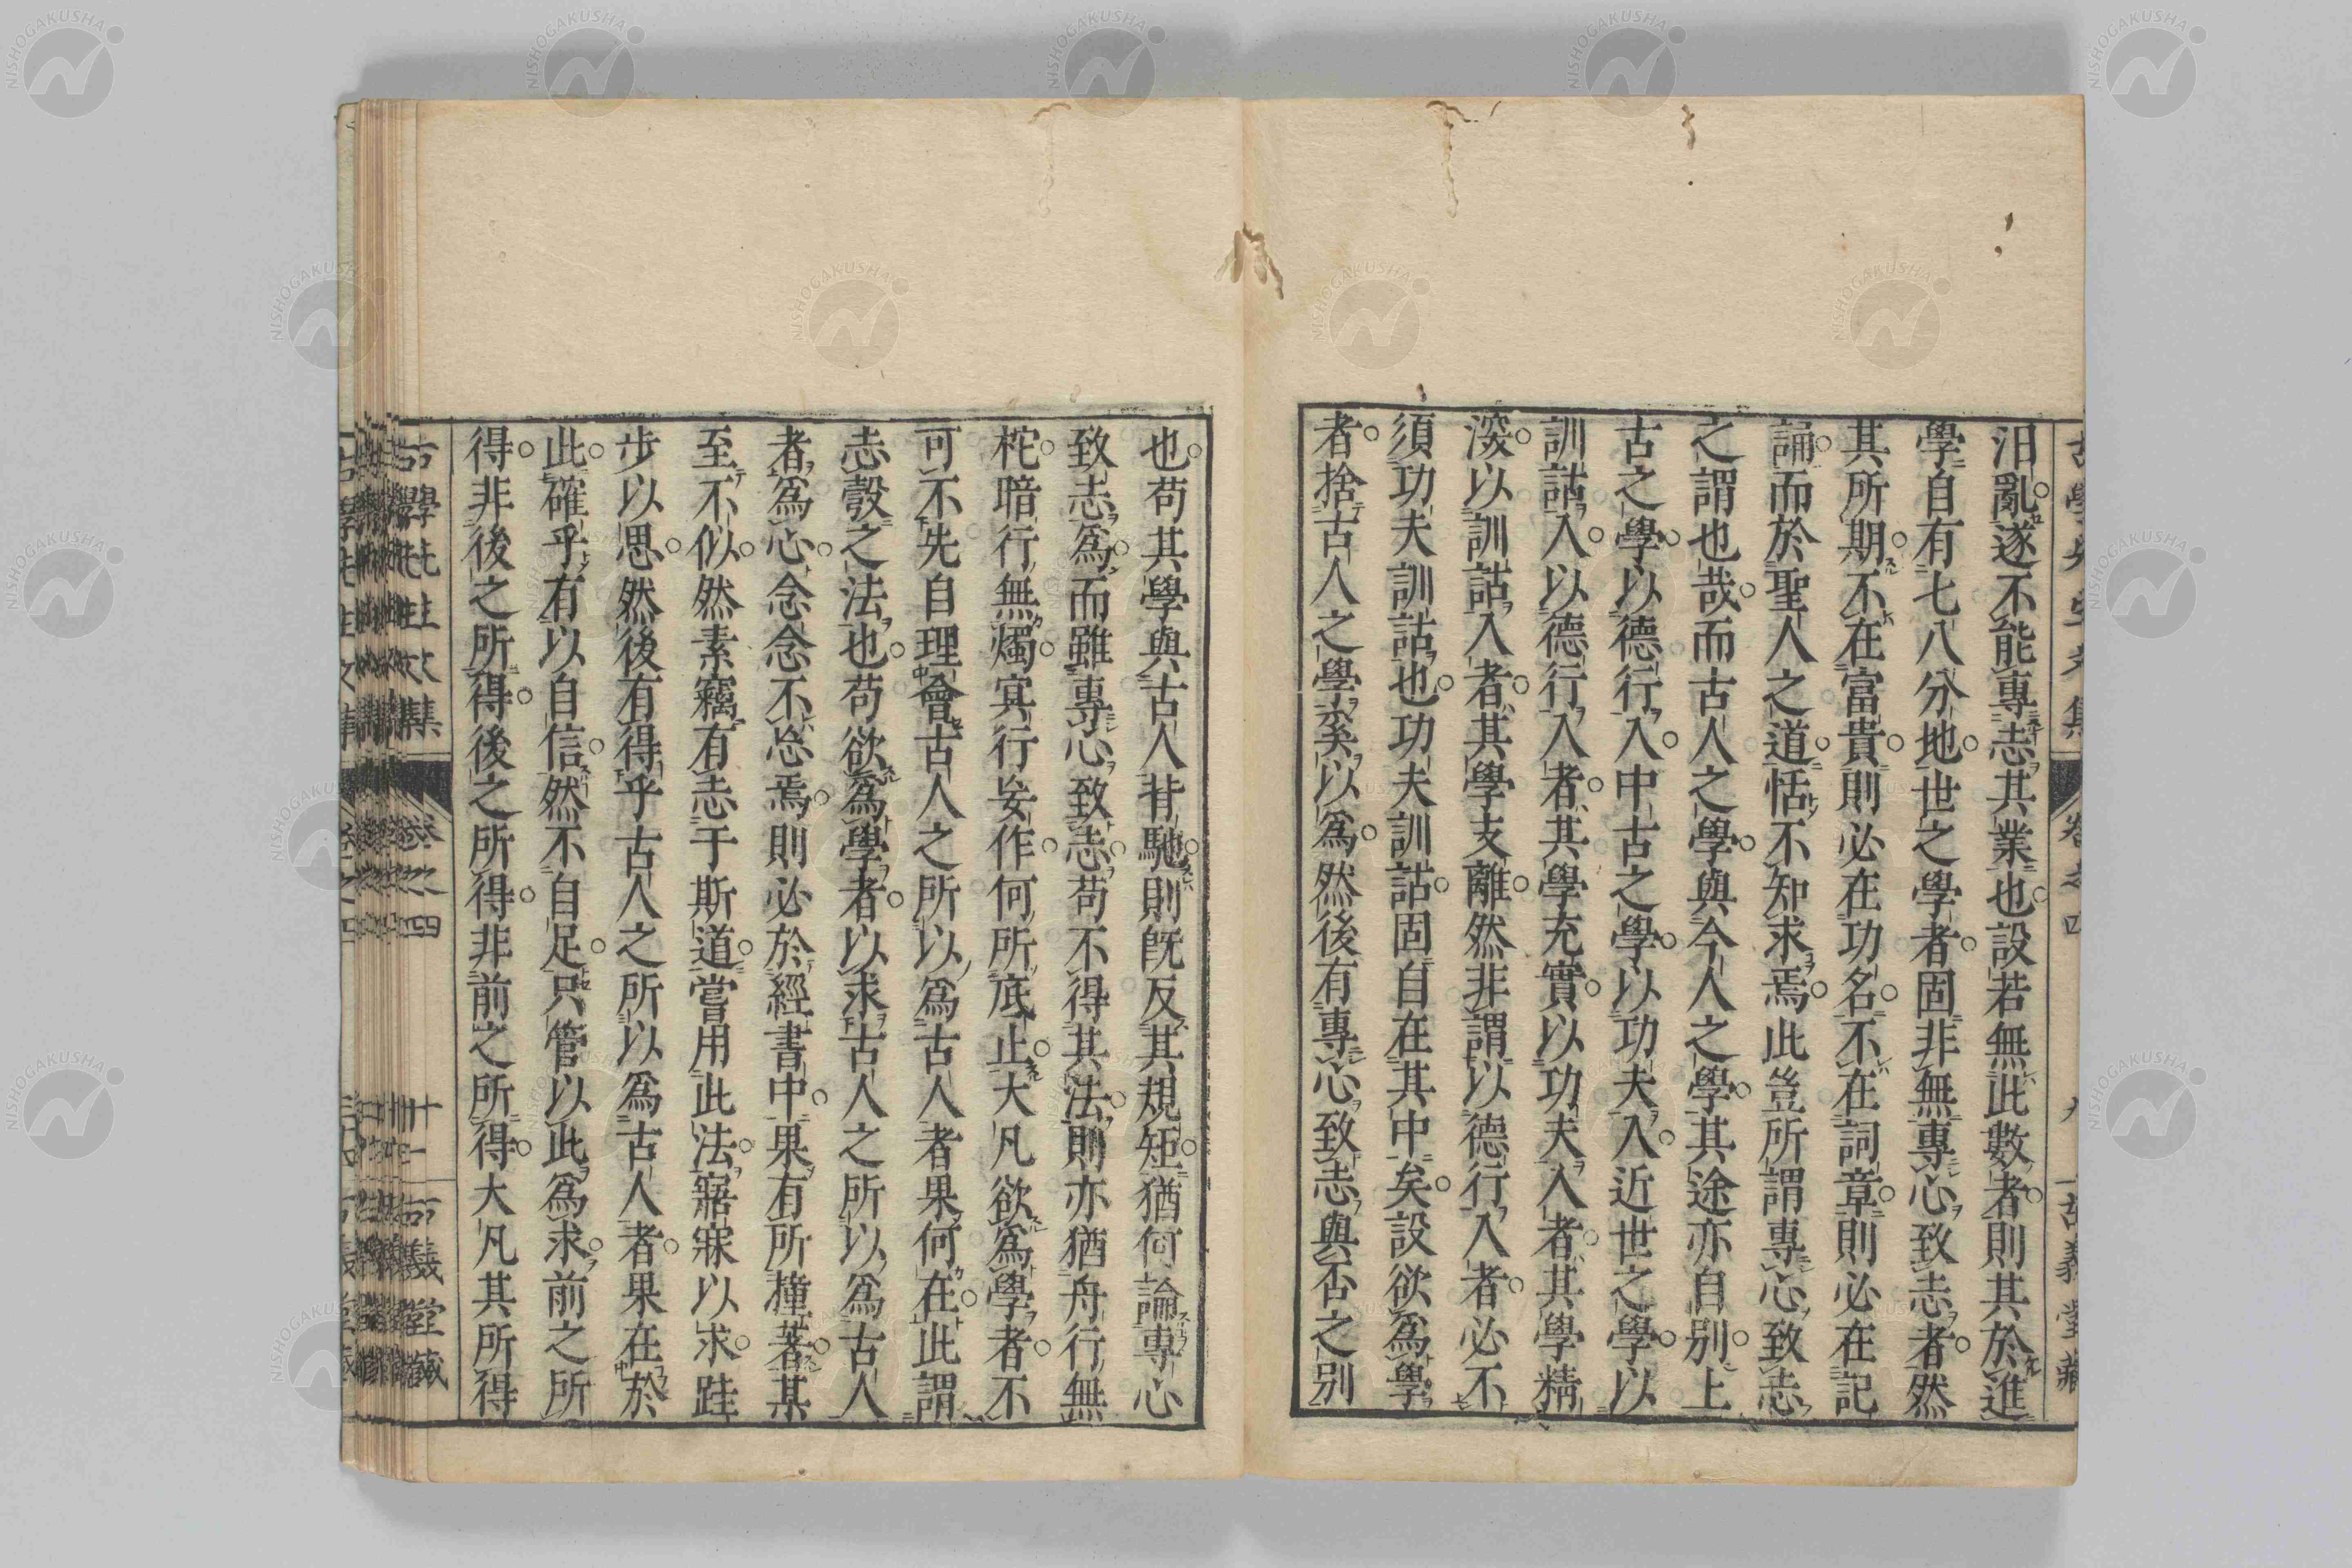 汨亂遂不能專志其業也設若無此數者則其於進
學自有七八分地世之學者固非無專心致志者然
其所期不在富貴則必在功名不在詞章則必在記
誦而於聖人之道恬不知求焉此豈所謂專心致志
之謂也哉而古人之學與今人之學其途亦自別上
古之學以德行入中古之學以功夫入近世之學以
訓詁入以德行入者其學充實以功夫入者其學精
深以訓詁入者其學支離然非謂以德行入者必不
須功夫訓詁也功夫訓詁固自在其中矣設欲為學
者捨古人之學奚以為然後有專心致志與否之別
也苟其學與古人背馳則既反其規矩猶何論專心
致志為而雖專心致志苟不得其法則亦猶舟行無
柁暗行無燭冥行妄作何所底止大凡欲為學者不
可不先自理會古人之所以為古人者果何在此謂
志彀之法也苟欲為學者以求古人之所以為古人
者為心念念不忘焉則必於經書中果有所撞著某
至不似然素竊有志于斯道嘗用此法寤寐以求跬
步以思然後有得乎古人之所以為古人者果在於
此確乎有以自信然不自足只管以此為求前之所
得非後之所得後之所得非前之所得大凡其所得
卷之四
古義堂藏
NISHOGAKUSHA